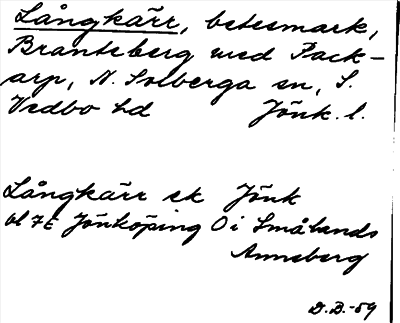 Långkärr, betesmark,
Brantsberg med Pack-
arp, N. Solberga sn, S.
Vedbo hd Jönk. l.
Långkärr ek Jönk
bl 7E Jönköping O i Smålands
Anneberg
D.B.-59